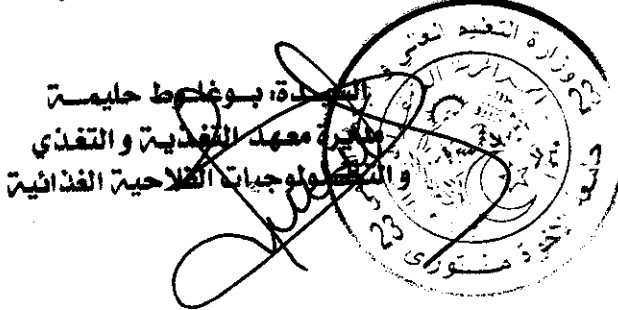 السيدة: بوغلوط حليمة
مديرة معهد التغذية و التغذي
و التكنولوجيات الفلاحية الغذائية
وزارة التعليم العالي و
جامعة الإخوة منتوري
23